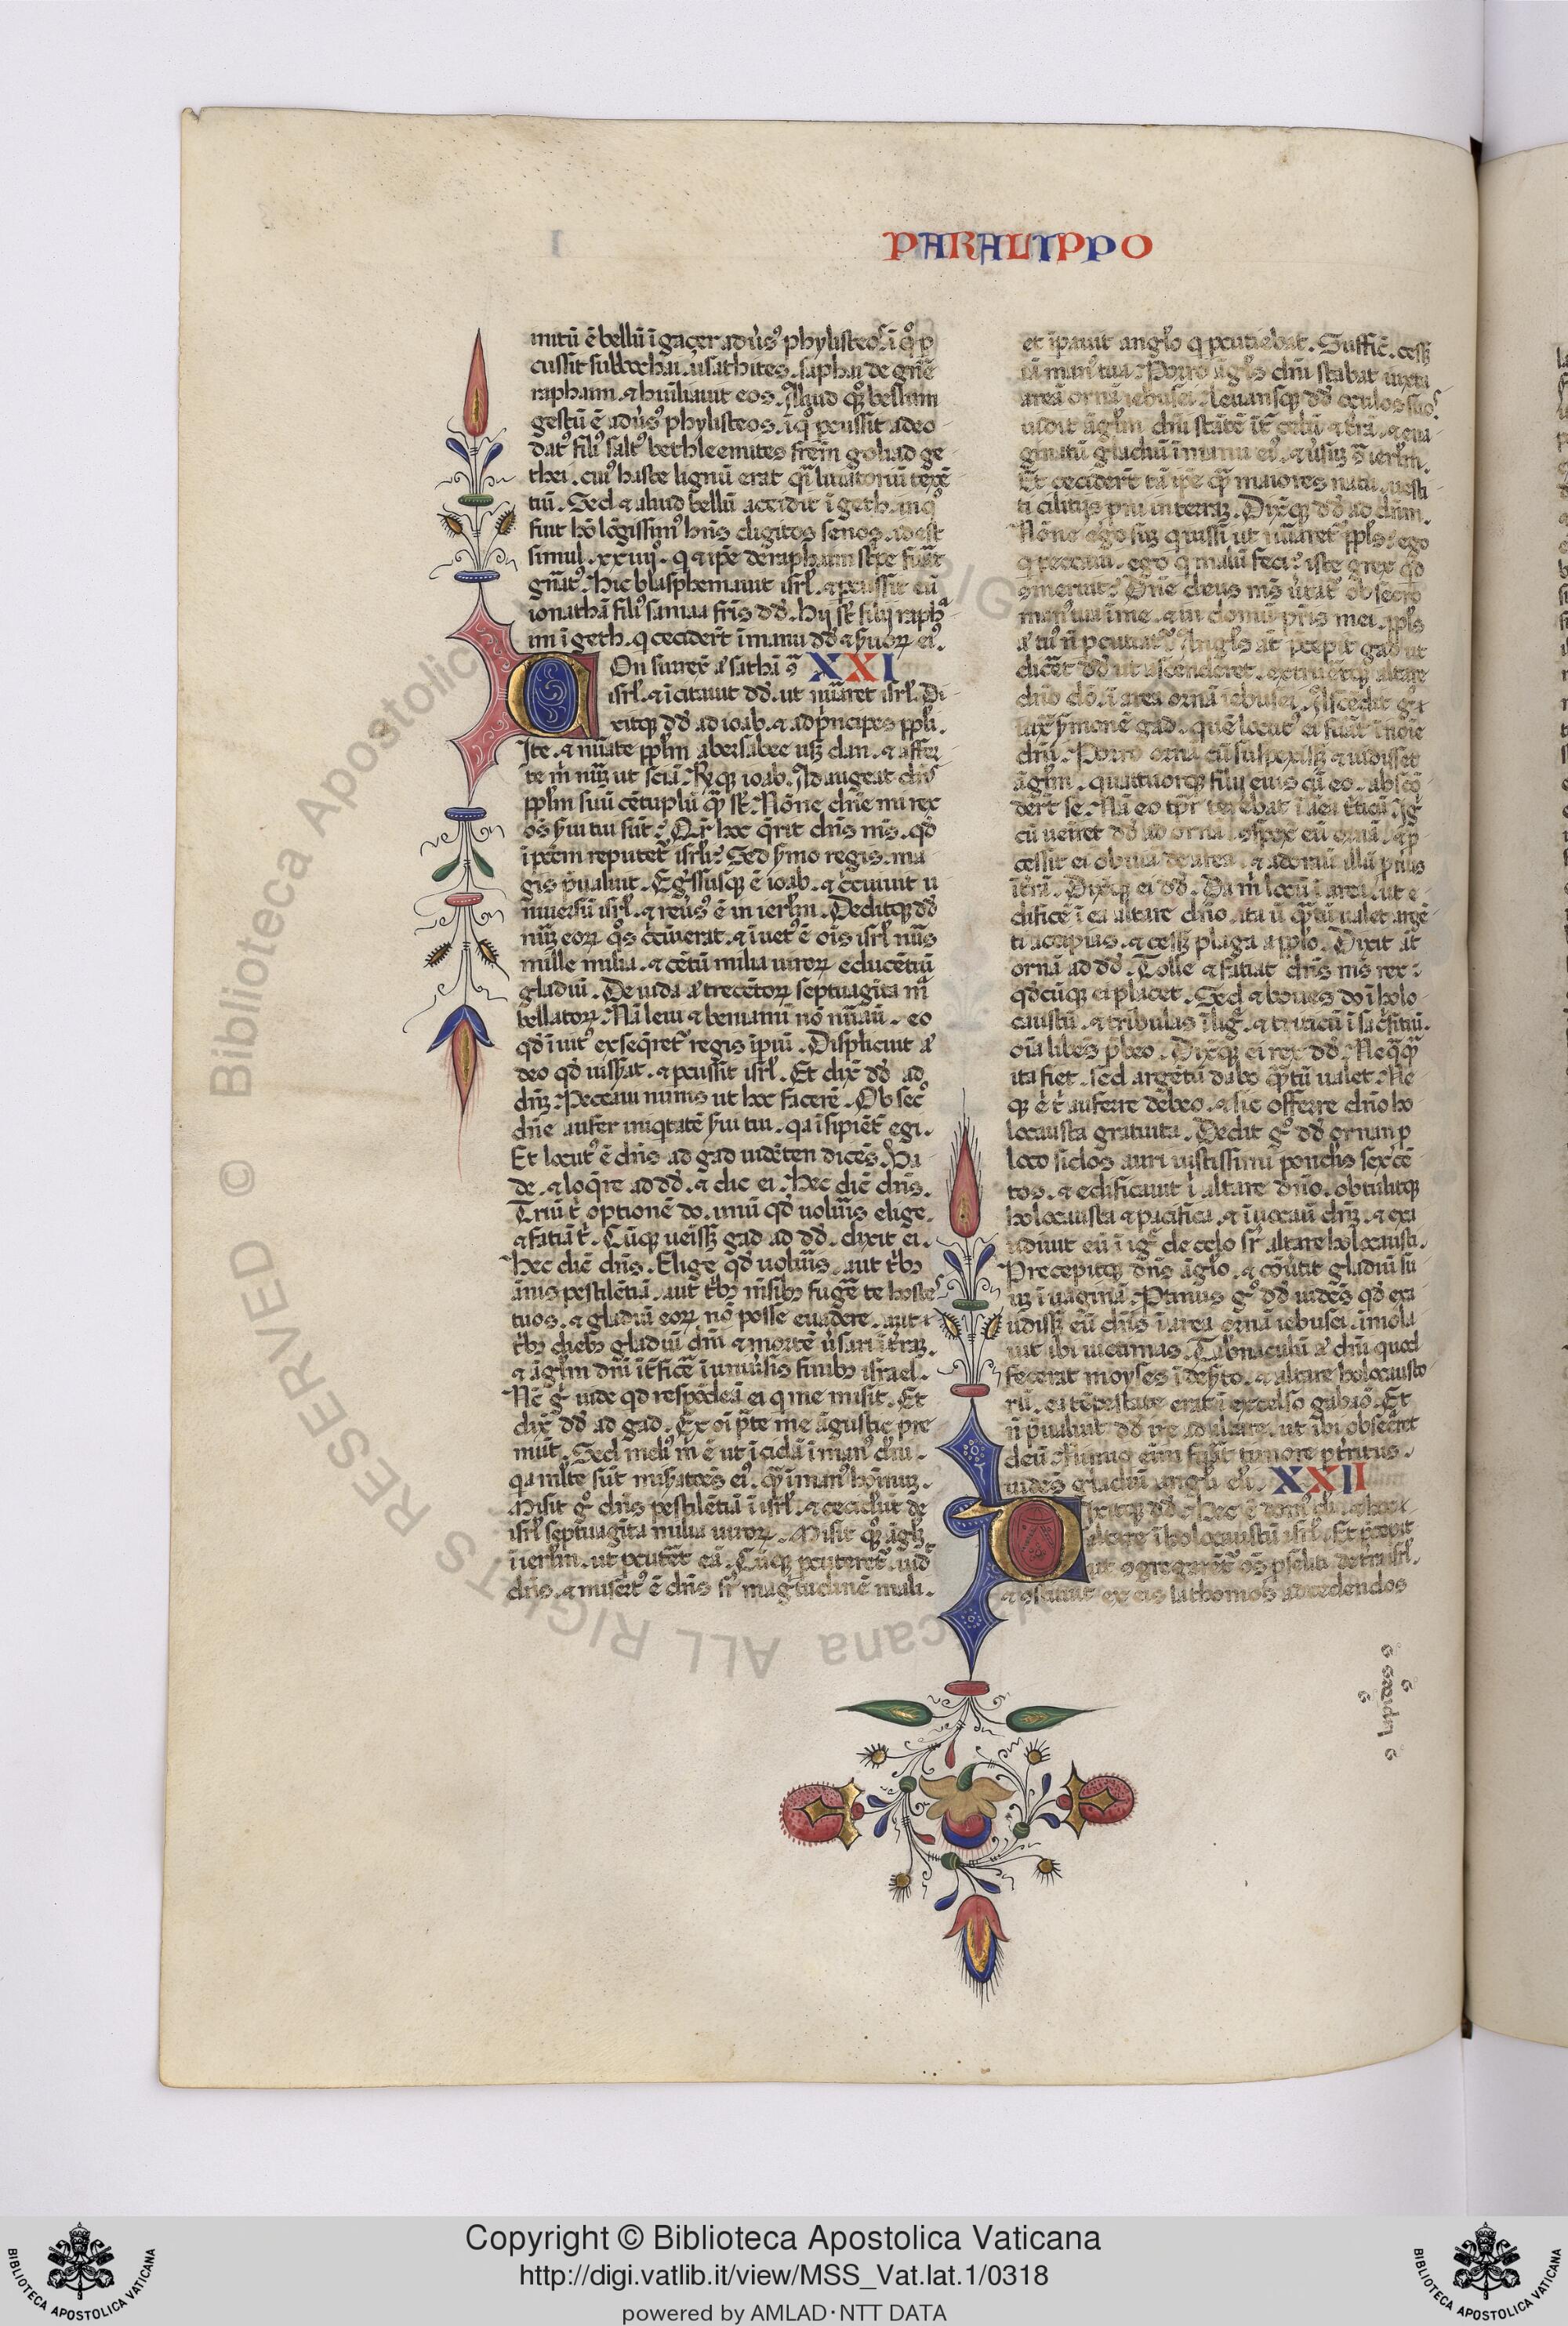 PARALIPPO
mitū ē bellū ī gaçer adūsꝰ phylisteoꝰ. ī qͦ ꝑ
cussit subbochai. usathites. saphai de gn̄e
raphaim. ⁊ hūiliauit eos. Aliud qꝫ bellum
gestū ē adūsꝰ phylisteos. ī qͦ ꝑcussit adeo
datꝰ filiꝰ saltꝰ bethleemites frēm goliad ge
thei. cuiꝰ haste lignū erat qͣi liciatoriū texē
tiū. Sed ⁊ aliud bellū accidit ī geth. in qͦ
fuit hō lōgissimꝰ hn̄s digitos senos. id est
simul. xxiiijͦ. q ⁊ ip̄e de raphaim stirpe fuāt
gn̄atꝰ. hic blasphemauit isrl̄. ⁊ ꝑcussit eū
ionathā filiꝰ samaa fr̄is dd̄. hij st̄ filij raphͣ
im ī geth. q cecider̄t ī manu dd̄ ⁊ ẜuoꝝ eiꝰ.
COnsurex̄ at̄ sathā ꝯ̄ XXI
isrl̄. ⁊ īcitauit dd̄. ut nūaret isrl̄. Di
xitqꝫ dd̄ ad ioab. ⁊ ad p̄ncipes ppl̄i.
Ite. ⁊ nūate ppl̄m abersabee usqꝫ dan. ⁊ affer
te m̄ nūꝫ ut sciā. Rx̄qꝫ ioab. Ad augeat dn̄s
ppl̄m suū cētuplū qͣꝫ st̄. Nōne dn̄e mi rex
oēs ẜui tui sūt? Qͣr̄ hoc q̄rit dn̄s ms̄. qd̄
ī pctm̄ reputet̄ isrl̄i? Sed ẜmo regis. ma
gis p̄ualuit. Eg̃ssusqꝫ ē ioab. ⁊ c̄cuiuit u
niuersū isrl̄. ⁊ reūsꝰ ē in ierl̄m. Deditqꝫ dd̄
nūꝫ eoꝝ qͦs c̄cuierat. ⁊ īuētꝰ ē ois isrl̄ nūs
mille milia. ⁊ cētū milia uiroꝝ educētiū
gladiū. De iuda at̄ trecētoꝝ septuagīta mͣ
bellatoꝝ. Nā leui ⁊ beniamī nō nūaū. eo
qd̄ īuitꝰ exseq̄ret̄ regis īꝑiū. Displicuit at̄
deo qd̄ iussꝰ erat. ⁊ ꝑcussit isrl̄. Et dix̄ dd̄ ad
dn̄ꝫ. Peccaui nimis ut hoc facerē. Obsecͦ
dn̄e aufer iniq̄tatē ẜui tui. qa īsipiēt̄ egi.
Et locutꝰ ē dn̄s ad gad uidētem dicēs. Va
de. ⁊ loq̄re ad dd̄. ⁊ dic ei. Hec dic̄ dn̄s.
Triū t̄ optionē do. unū qd̄ uolūis elige.
⁊ faciā t̄. Cūqꝫ ueissꝫ gad ad dd̄. dixit ei.
Hec dic̄ dn̄s. Elige qd̄ uolūis. aut t̄bꝫ
ānis pestilētiā. aut t̄bꝫ m̄sibꝫ fugē te hosteꝰ
tuos. ⁊ gladiū eoꝝ nō posse euadere. aut
t̄bꝫ diebꝫ gladiū dn̄i ⁊ mortē ūsari ī t̄raꝫ.
⁊ āgl̄m dn̄i īt̄ficē ī uniūsis finibꝫ israel.
Nc̄ gͦ uide qd respōdeā ei q me misit. Et
dix̄ dd̄ ad gad. Ex oī p̄te me āgustie pre
mūt. Sed meliꝰ m̄ ē ut īcidā ī manꝰ dn̄i.
qa mlt̄e sūt mis̄atiōes eiꝰ. qͣꝫ ī manꝰ hoīnuꝫ.
Misit gͦ dn̄s pestilētiā ī isrl̄. ⁊ cecider̄ūt de
isrl̄ septuagīta milia uiroꝝ. Misit qꝫ āgl̄ꝫ
ī ierl̄m. ut ꝑcut̄et eā. Cūqꝫ ꝑcuteret̄. uid̄
dn̄s. ⁊ misert̄ꝰ ē dn̄s sr̄ magītudinē mali.
et īꝑauit angl̄o q ꝑcutiebat. Sufficͥ. cessꝫ
iā manꝰ tua. Porro āgl̄s dn̄i stabat iuxta
areā ornā iebusei. Leuansqꝫ dd̄ oculos suoꝰ
uidit āgl̄m dn̄i stātē īt̄ celū ⁊ t̄ra. ⁊ eua
ginatū gladiū ī manu eiꝰ. ⁊ ūsuꝫ ꝯ̄ ierl̄m.
Et cecider̄t tā ip̄e qͣꝫ maiores natu. uesti
ti cilitijs pni in terraꝫ. Dix̄qꝫ dd̄ ad dn̄m.
Nōne ego suꝫ q iussi ut nūaret̄ ppl̄s. ego
q peccaui. ego q malū feci. iste grex qd̄
ꝯmeruit? Dn̄e deus ms̄ ūtat̄ obsecro
manꝰ tua ī me. ⁊ in domū pr̄is mei. ppl̄s
at̄ tuꝰ n̄ ꝑcutiat̄. Angl̄s at̄ p̄cepit gad ut
dic̄et dd̄ ut ascenderet. extrueretqꝫ altare
dn̄o dō. ī area ornā iebusei. Ascēdit gͦ
iux̄ ẜmonē gad. quē locutꝰ ei fuāt ī noīe
dn̄i. Porro ornā cū suspexissꝫ ⁊ uidisset
āgl̄m. quattuorqꝫ filij eius cū eo. abscō
der̄t se. Nā eo tp̄r terebat ī area t̄ticū. Ig̃
cū ueīret dd̄ ad ornā. ꝯspex̄ eū ornā. ⁊ p̄
cessit ei obuiā de area. ⁊ adorauit illū pnus
ī t̄rā. Dixitqꝫ ei dd̄. Da m̄ locū ī area. ut e
dificē ī ea altare dn̄o. ita ū qͣꝫtū ualet argē
ti accipias. ⁊ cessꝫ plaga a ppl̄o. Dixit at̄
ornā ad dd̄. Tolle ⁊ fatiat dn̄s ms̄ rex.
qd̄cūqꝫ ei placet. Sed ⁊ boues do ī holo
caustū. ⁊ tribulas ī lig̃. ⁊ triticū ī sac̄fitiū.
oīa libēs p̄beo. Dix̄qꝫ ei rex dd̄. Neqͣqͣꝫ
ita fiet. sed argētū dabo qͣꝫtū ualet. Ne
qꝫ ē t̄ auferre debeo. ⁊ sic offerre dn̄o ho
locausta gratuita. Dedit gͦ dd̄ ornan ꝑ
loco siclos auri iustissimi ponderis sexcē
tos. ⁊ edificauit ī altare dn̄o. obtulitqꝫ
holocausta ⁊ pacifica. ⁊ īuocauit dn̄ꝫ. ⁊ exa
udiuit eū ī ig̃ de celo sr̄ altare holocausti.
Precepitqꝫ dn̄s āgl̄o. ⁊ cōūtit gladiū su
uꝫ ī uaginā. Ptinus gͦ dd̄ uidēs qd̄ exa
udissꝫ eū dn̄s ī area ornā iebusei. imola
uit ibi uictimas. Tab̄naculū at̄ dn̄i quod
fecerat moyses ī desꝰto. ⁊ altare holocausto
rū. ea tēpestate erat ī excelso gabaō. Et
n̄ p̄ualuit dd̄ ire ad altare. ut ibi obsec̄ret
deū. Nimio eīm fuāt timore ꝑt̄ritus.
uidēs gladiū angl̄i dn̄i. XXII
DIxitqꝫ dd̄. Hec ē domꝰ dei. ⁊ hoc
altare ī holocaustū isrl̄. Et p̄cepit
ut ꝯgregarēt̄ oēs ꝑseliti de t̄ra isrl̄.
⁊ ꝯstituit ex eis lathomos ad cedendos
lapides
Copyright © Biblioteca Apostolica Vaticana
http://digi.vatlib.it/view/MSS_Vat.lat.1/0318
powered by AMLAD·NTT DATA
BIBLIOTECA APOSTOLICA VATICANA
BIBLIOTECA APOSTOLICA VATICANA
© Biblioteca Apostolica Vaticana ALL RIGHTS RESERVED